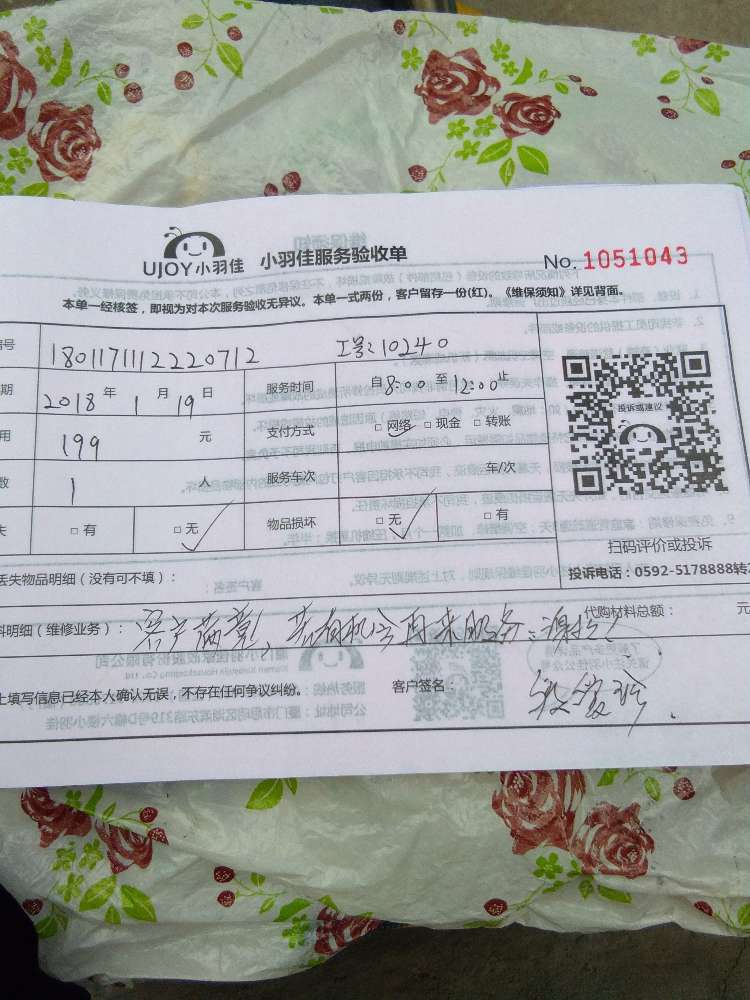 UJOY小羽佳 小羽佳服务验收单 No. 1051043
本单一经核签，即视为对本次服务验收无异议。本单一式两份，客户留存一份(红)。《维保须知》详见背面。
号 1801171112220712 工号：10240
期 2018 年 1 月 19 日 服务时间 自 8:00 至 12:00 止
用 199 元 支付方式 □ 网络 □ 现金 □ 转账
数 1 人 服务车次 车/次
失 □ 有 □ 无 ✓ 物品损坏 □ 无 ✓ □ 有
投诉或建议
扫码评价或投诉
投诉电话：0592-5178888转2
丢失物品明细（没有可不填）：
料明细（维修业务）： 客户满意，若有机会再来服务：谢谢！ 代购材料总额： 元
上填写信息已经本人确认无误，不存在任何争议纠纷。 客户签名：